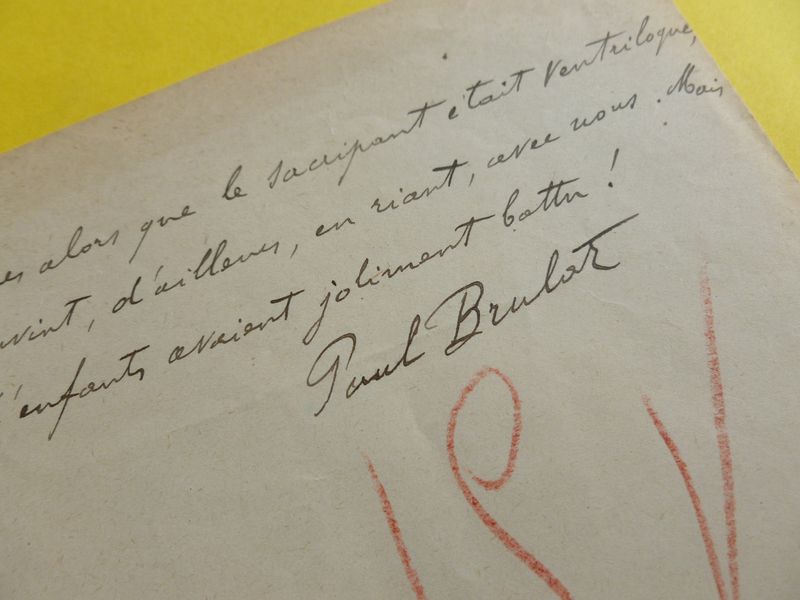 es alors que le sacripant était ventriloque,
vint, d'ailleurs, en riant, avec nous. Mais
d'enfants avaient joliment battu !
Paul Brulat